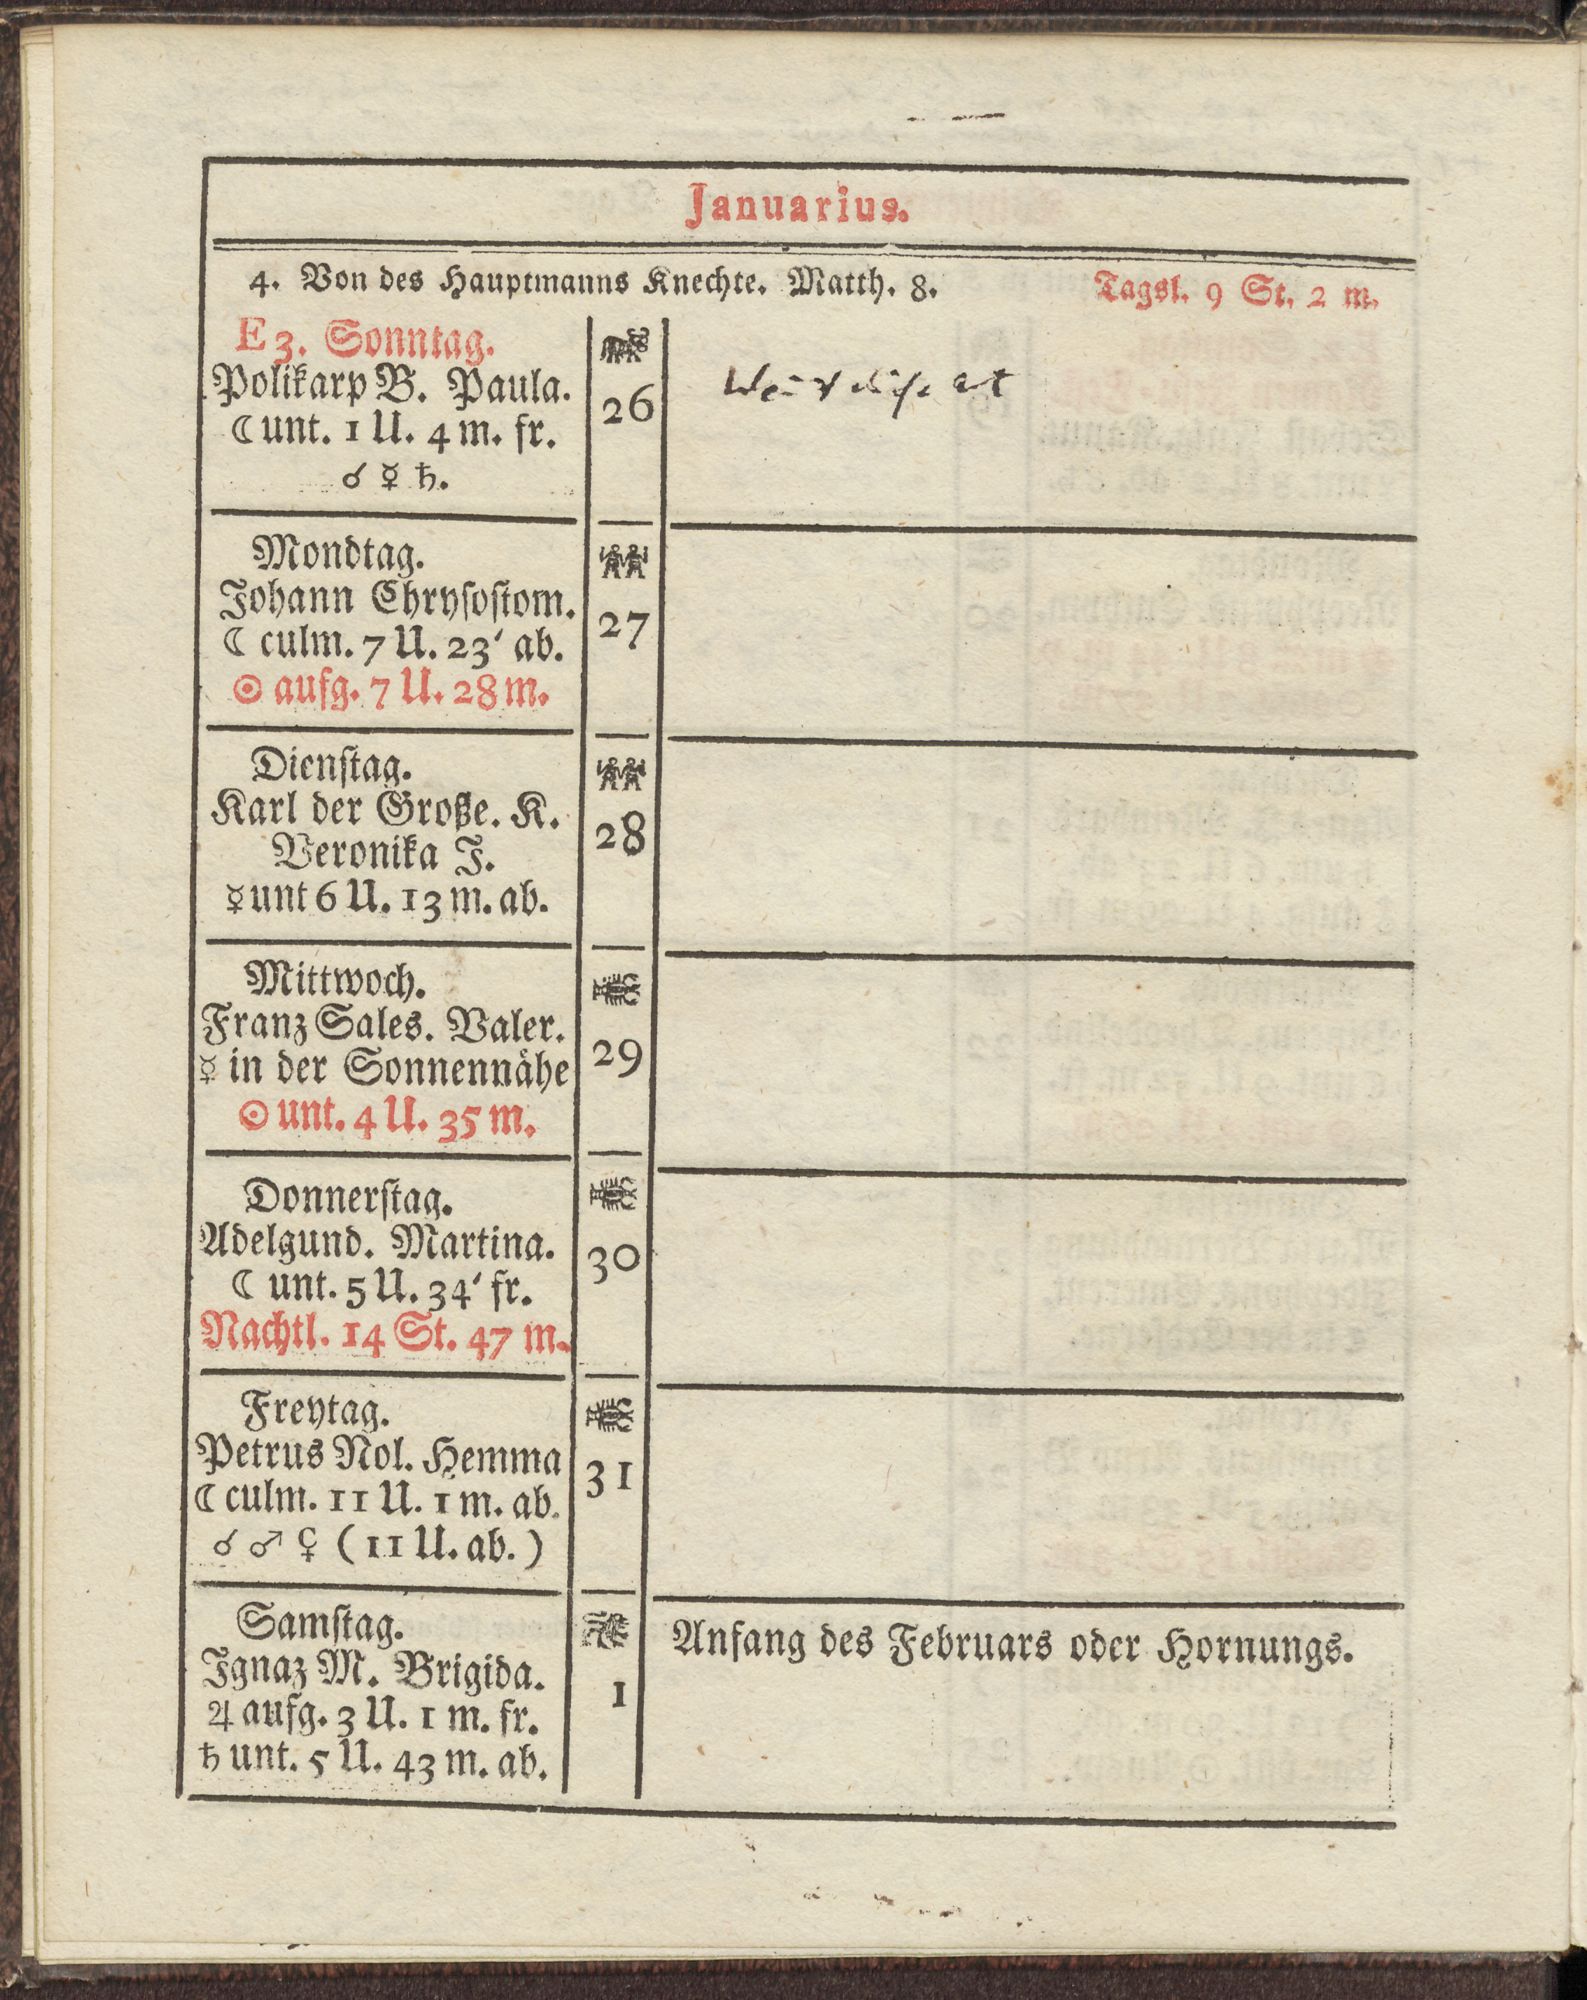 Januarius.
4. Von des Hauptmanns Knechte. Matth. 8.
Tagsl. 9 St. 2 m.
E 3. Sonntag.
Polikarp B. Paula.
☾ unt. 1 U. 4 m. fr.
☌ ☿ ♄.
26
Mondtag.
Johann Chrysostom.
☾ culm. 7 U. 23′ ab.
☉ aufg. 7 U. 28 m.
27
Dienstag.
Karl der Große. K.
Veronika J.
☿ unt 6 U. 13 m. ab.
28
Mittwoch.
Franz Sales. Valer.
☿ in der Sonnennähe
☉ unt. 4 U. 35 m.
29
Donnerstag.
Adelgund. Martina.
☾ unt. 5 U. 34′ fr.
Nachtl. 14 St. 47 m.
30
Freytag.
Petrus Nol. Hemma
☾ culm. 11 U. 1 m. ab.
☌ ♂ ♀ (11 U. ab.)
31
Samstag.
Ignaz M. Brigida.
♃ aufg. 3 U. 1 m. fr.
♄ unt. 5 U. 43 m. ab.
1
Anfang des Februars oder Hornungs.